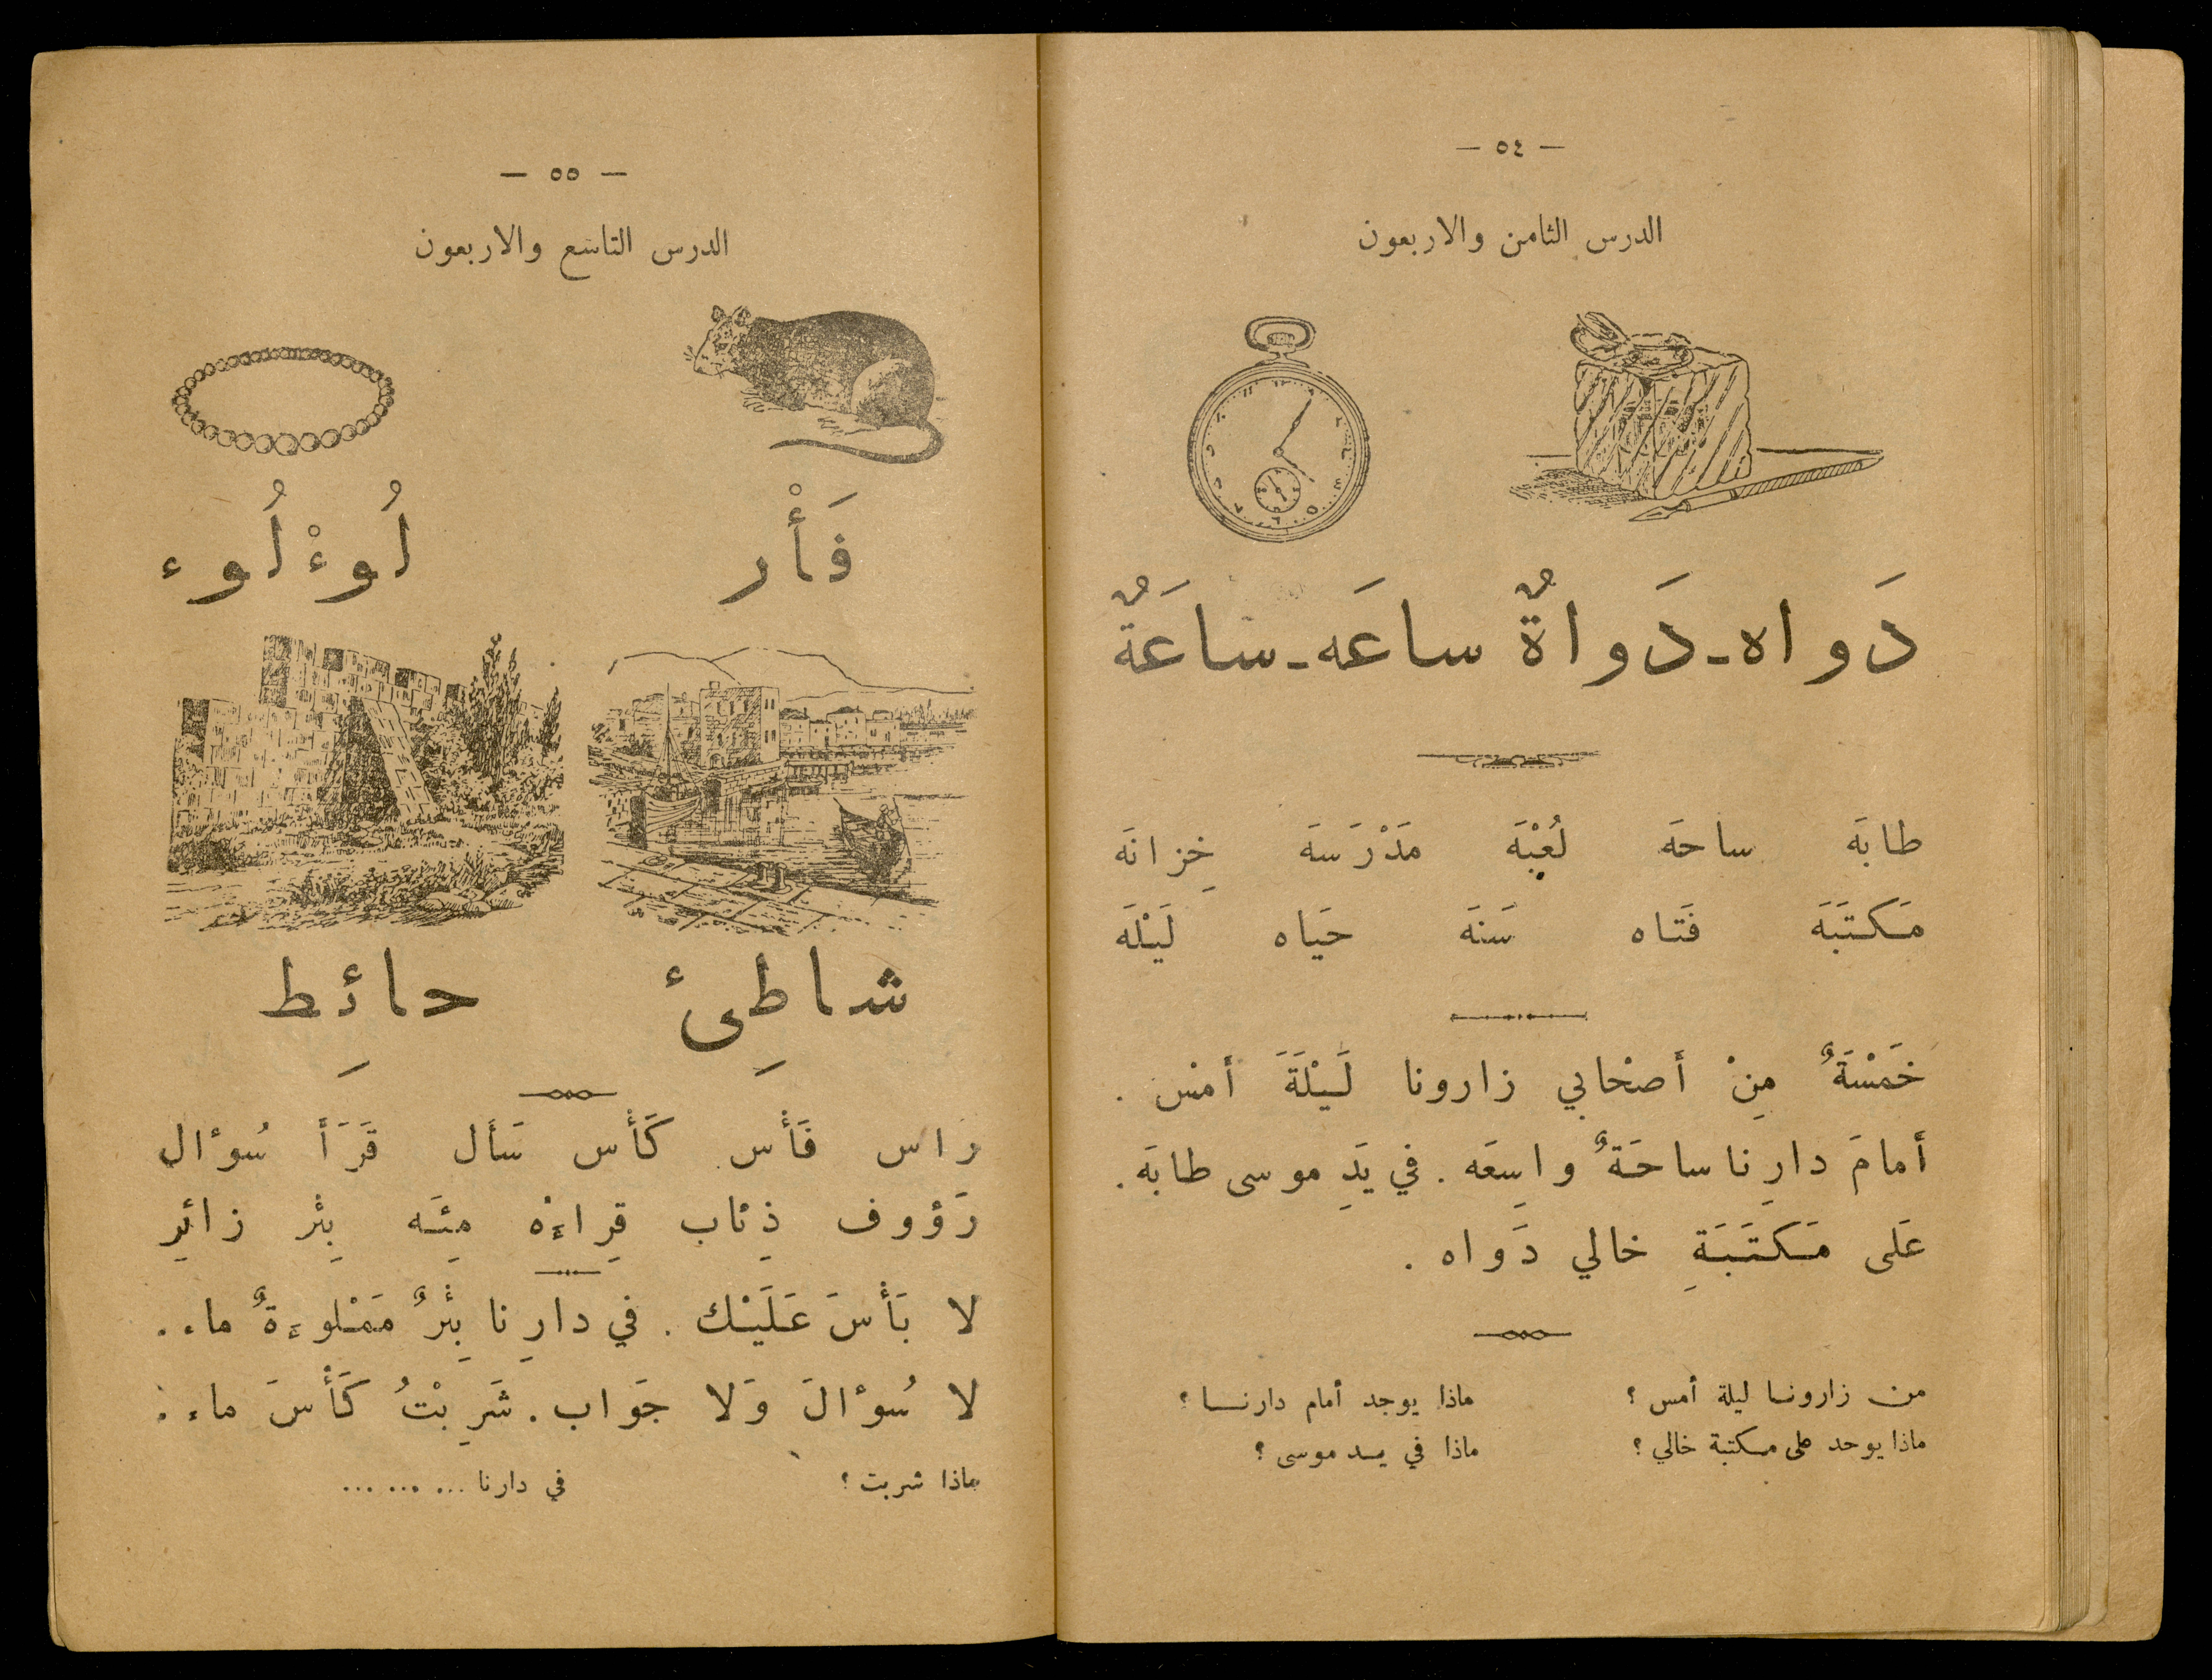 — ٥٤ —
الدرس الثامن والاربعون
دَواه - دَواةٌ ساعَه - ساعَةٌ
طابَه ساحَه لُعْبَه مَدْرَسَه خِزانَه
مَكتَبَه فَتاه سَنَه حَياه لَيْلَه
خَمْسَةٌ مِنْ أَصْحابي زارونا لَيْلَةَ أمْس .
أَمامَ دارِنا ساحَةٌ واسِعَه . في يَدِ موسى طابَه .
عَلَى مَكتَبَةِ خالي دَواه .
من زارونا ليلة أمس ؟ ماذا يوجد أمام دارنا ؟
ماذا يوحد على مكتبة خالي ؟ ماذا في يد موسى ؟
— ٥٥ —
الدرس التاسع والاربعون
فَأْر لُوءْلُوء
شاطِئ حائِط
راس فَأْس كَأْس سَأَل قَرَأَ سُؤال
رَؤوف ذِئاب قِراءَه مِئَه بِئْر زائِر
لا بَأْسَ عَلَيْك . في دارِنا بِئْرٌ مَمْلوءَةٌ ماء .
لا سُؤالَ وَلا جَواب . شَرِبْتُ كَأْسَ ماء .
ماذا شربت ؟ في دارنا ... ... ...